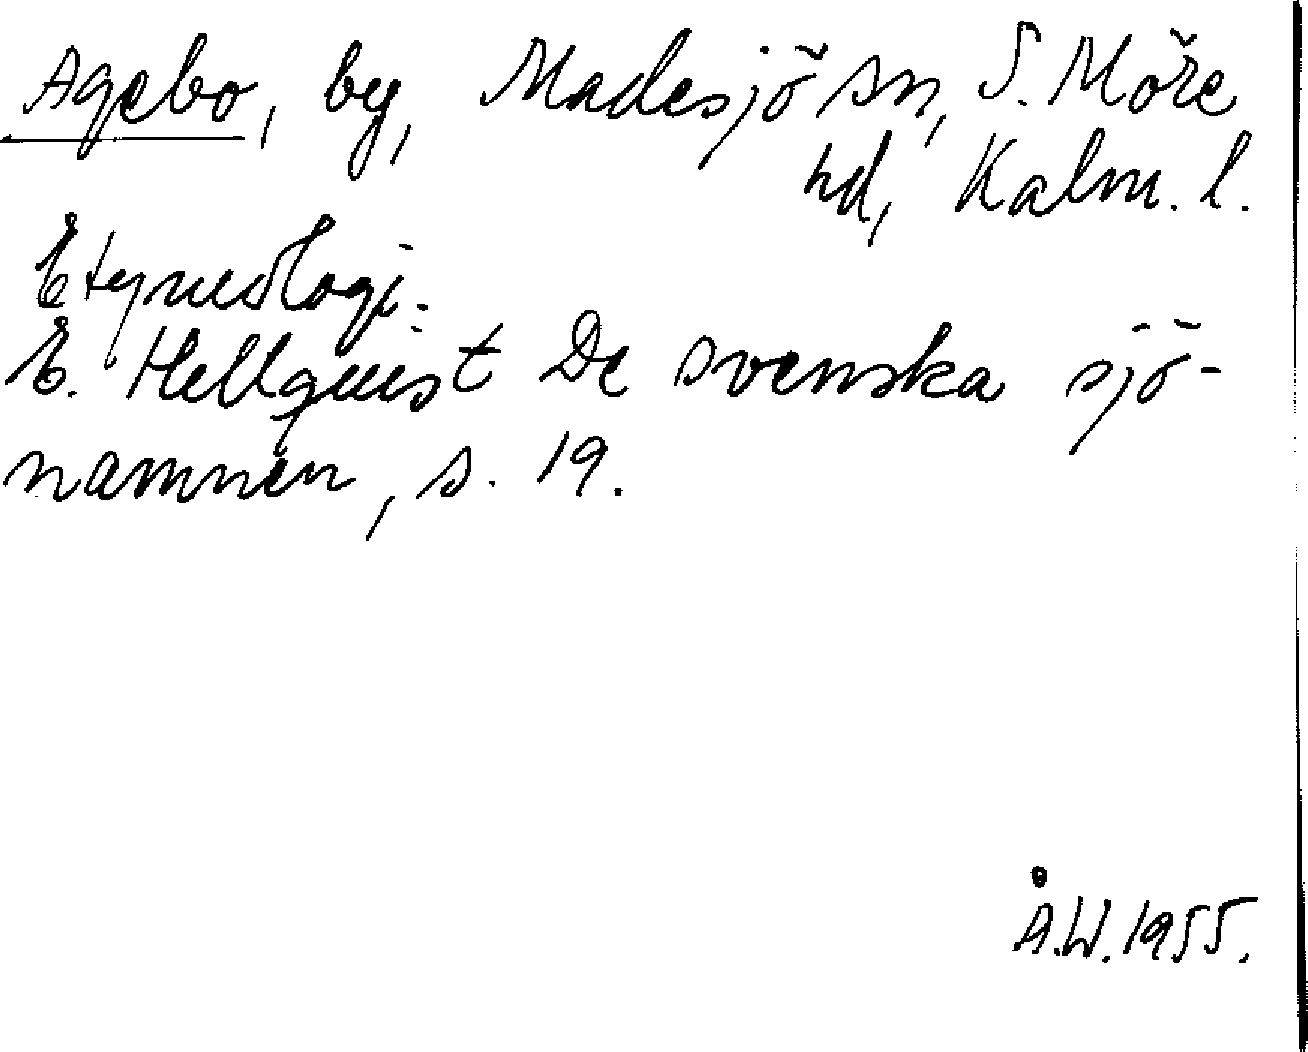 Agebo, by, Madesjö sn, S. Möre
hd, Kalm. l.
Etymologi:
E. Hellquist De svenska sjö-
namnen, s. 19.
Å.W. 1955.